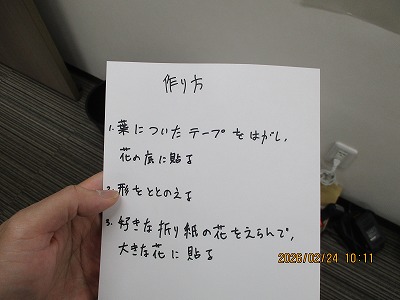 作り方
1. 葉についたテープをはがし、
花の底に貼る
2. 形をととのえる
3. 好きな折り紙の花をえらんで、
大きな花に貼る
2026/02/24 10:11